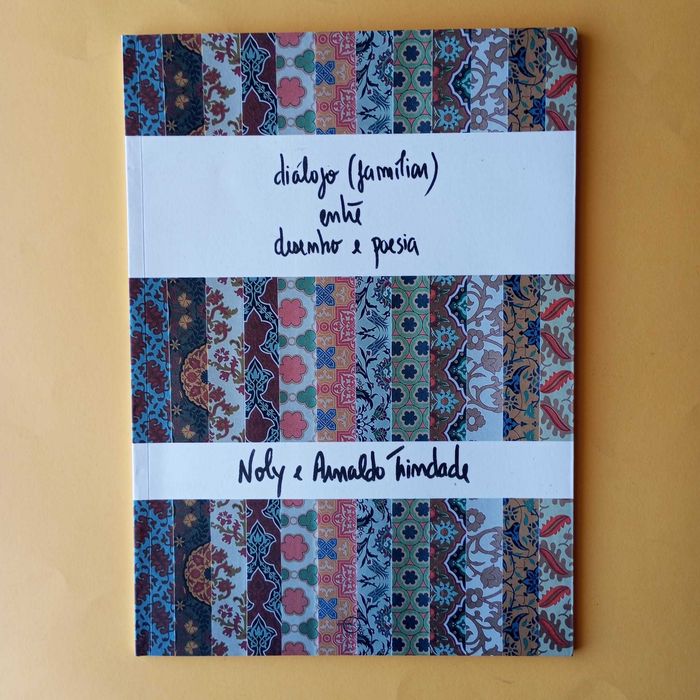 diálogo (familiar)
entre
desenho e poesia
Noly e Arnaldo Trindade